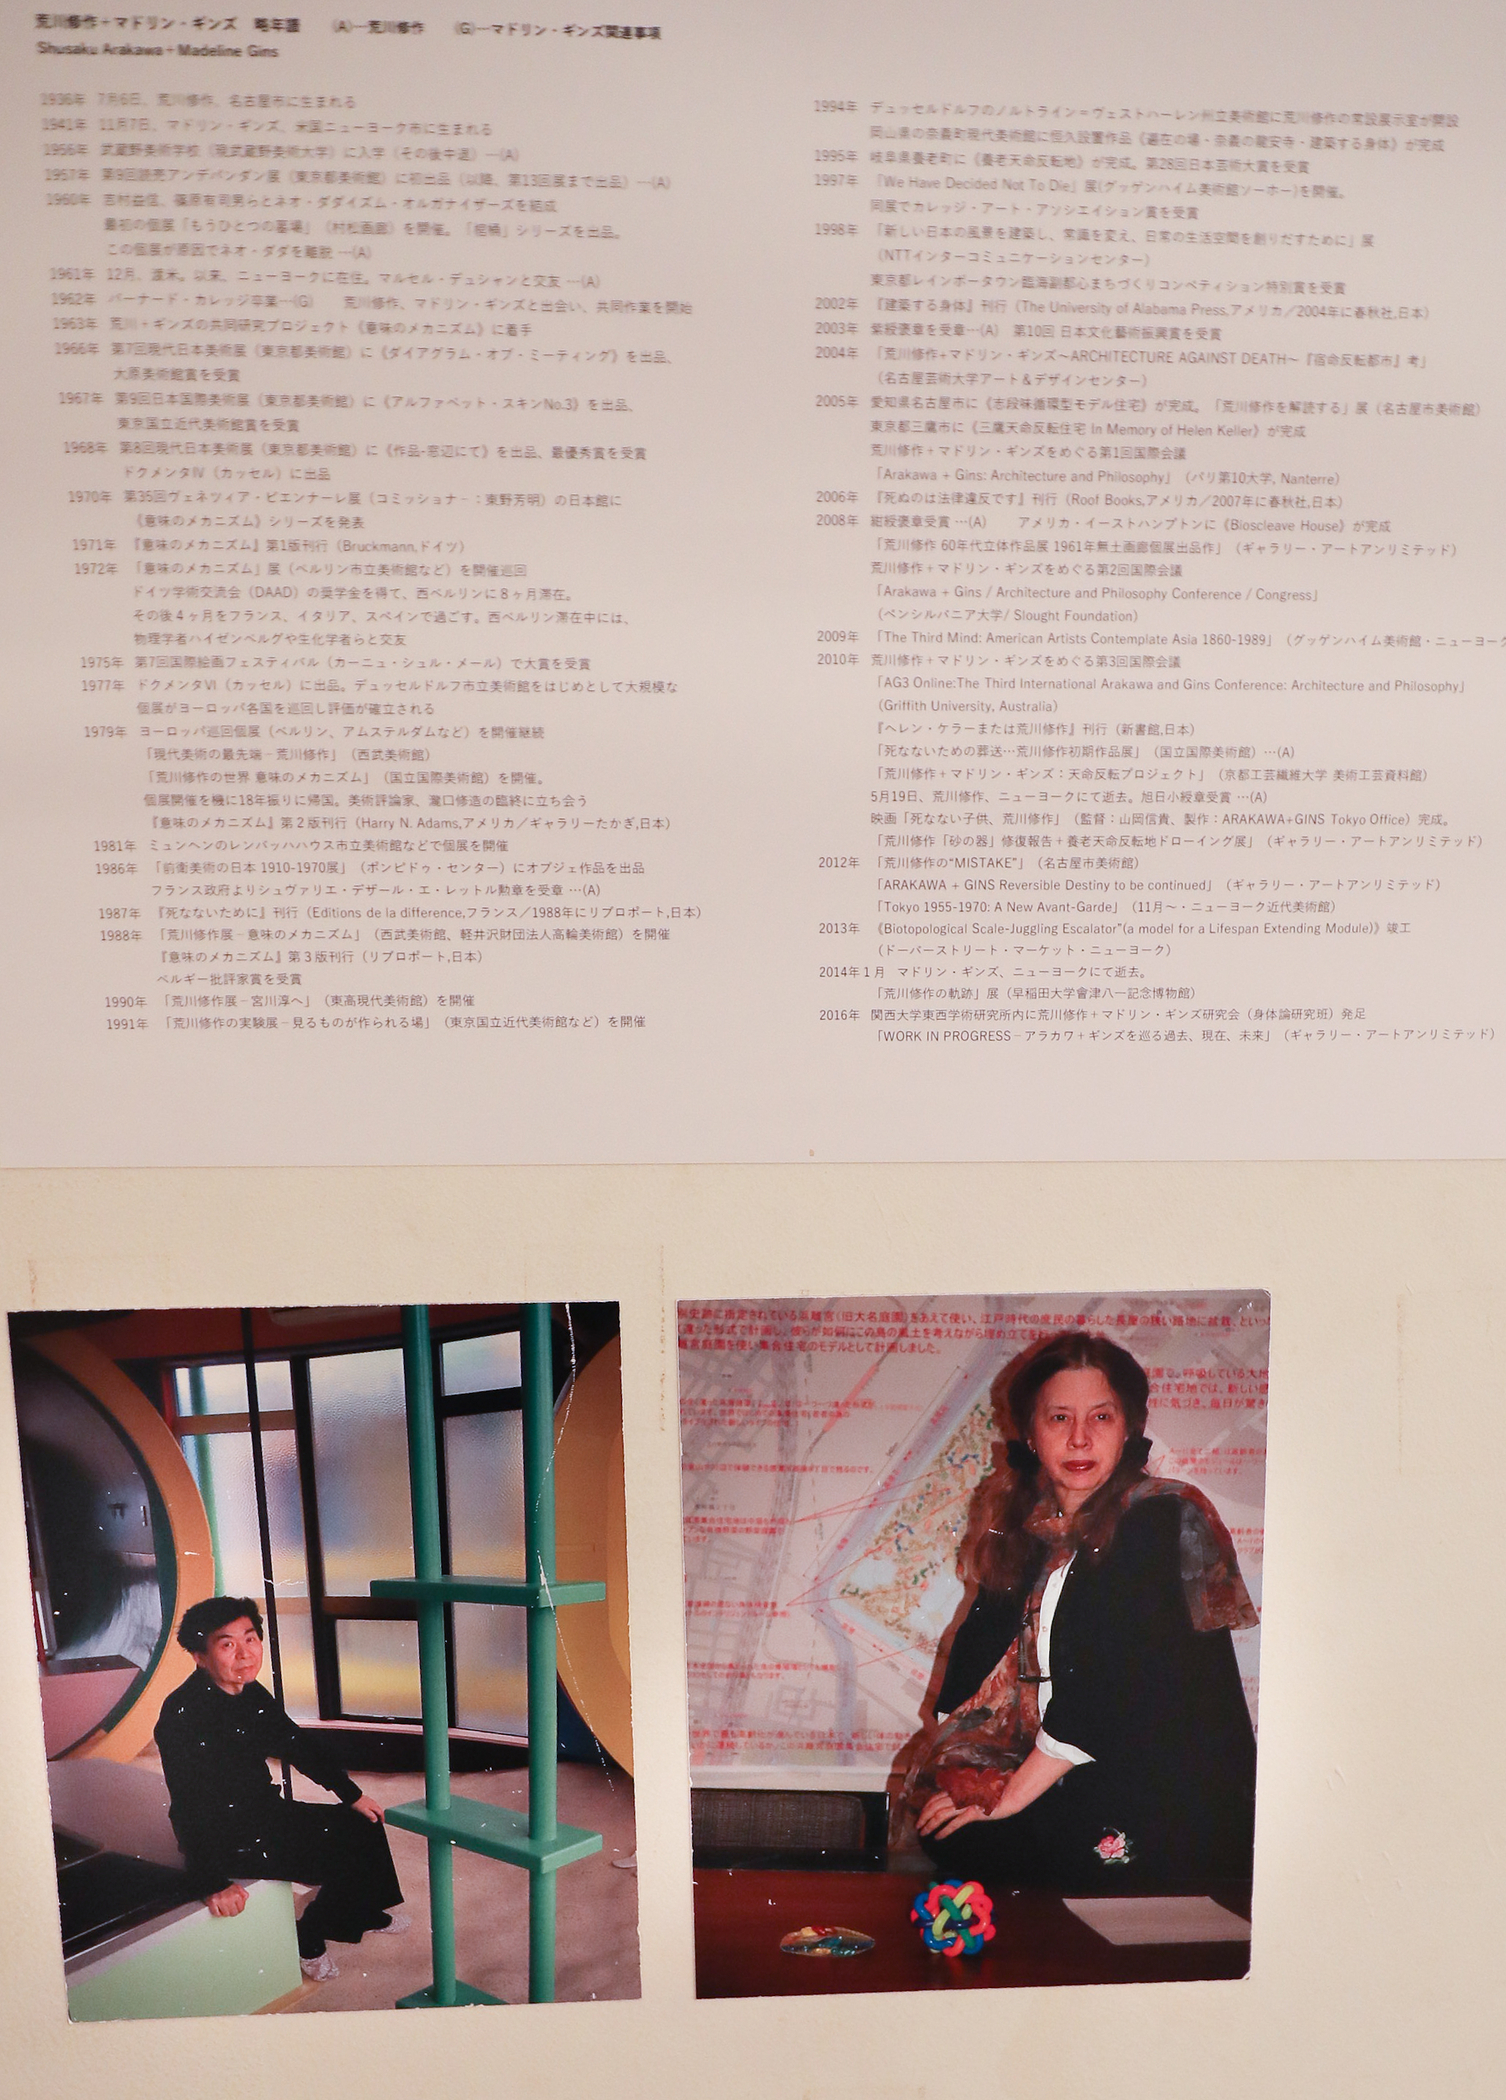 荒川修作+マドリン・ギンズ 略年譜 (A)─荒川修作 (G)─マドリン・ギンズ関連事項
Shusaku Arakawa+Madeline Gins
1936年 7月6日、荒川修作、名古屋市に生まれる
1941年 11月7日、マドリン・ギンズ、米国ニューヨーク市に生まれる
1956年 武蔵野美術学校（現武蔵野美術大学）に入学（その後中退）…(A)
1957年 第9回読売アンデパンダン展（東京都美術館）に初出品（以降、第13回展まで出品）…(A)
1960年 吉村益信、篠原有司男らとネオ・ダダイズム・オルガナイザーズを結成
最初の個展「もうひとつの墓場」（村松画廊）を開催。「棺桶」シリーズを出品。
この個展が原因でネオ・ダダを離脱 …(A)
1961年 12月、渡米。以来、ニューヨークに在住。マルセル・デュシャンと交友 …(A)
1962年 バーナード・カレッジ卒業…(G) 荒川修作、マドリン・ギンズと出会い、共同作業を開始
1963年 荒川+ギンズの共同研究プロジェクト《意味のメカニズム》に着手
1966年 第7回現代日本美術展（東京都美術館）に《ダイアグラム・オブ・ミーティング》を出品、
大原美術館賞を受賞
1967年 第9回日本国際美術展（東京都美術館）に《アルファベット・スキンNo.3》を出品、
東京国立近代美術館賞を受賞
1968年 第8回現代日本美術展（東京都美術館）に《作品-窓辺にて》を出品、最優秀賞を受賞
ドクメンタⅣ（カッセル）に出品
1970年 第35回ヴェネツィア・ビエンナーレ展（コミッショナ－：東野芳明）の日本館に
《意味のメカニズム》シリーズを発表
1971年 『意味のメカニズム』第1版刊行（Bruckmann,ドイツ）
1972年 「意味のメカニズム」展（ベルリン市立美術館など）を開催巡回
ドイツ学術交流会（DAAD）の奨学金を得て、西ベルリンに８ヶ月滞在。
その後４ヶ月をフランス、イタリア、スペインで過ごす。西ベルリン滞在中には、
物理学者ハイゼンベルグや生化学者らと交友
1975年 第7回国際絵画フェスティバル（カーニュ・シュル・メール）で大賞を受賞
1977年 ドクメンタⅥ（カッセル）に出品。デュッセルドルフ市立美術館をはじめとして大規模な
個展がヨーロッパ各国を巡回し評価が確立される
1979年 ヨーロッパ巡回個展（ベルリン、アムステルダムなど）を開催継続
「現代美術の最先端－荒川修作」（西武美術館）
「荒川修作の世界 意味のメカニズム」（国立国際美術館）を開催。
個展開催を機に18年振りに帰国。美術評論家、瀧口修造の臨終に立ち会う
『意味のメカニズム』第２版刊行（Harry N. Adams,アメリカ／ギャラリーたかぎ,日本）
1981年 ミュンヘンのレンバッハハウス市立美術館などで個展を開催
1986年 「前衛美術の日本 1910-1970展」（ポンピドゥ・センター）にオブジェ作品を出品
フランス政府よりシュヴァリエ・デザール・エ・レットル勲章を受章 …(A)
1987年 『死なないために』刊行（Editions de la difference,フランス／1988年にリブロポート,日本）
1988年 「荒川修作展－意味のメカニズム」（西武美術館、軽井沢財団法人高輪美術館）を開催
『意味のメカニズム』第３版刊行（リブロポート,日本）
ベルギー批評家賞を受賞
1990年 「荒川修作展－宮川淳へ」（東高現代美術館）を開催
1991年 「荒川修作の実験展－見るものが作られる場」（東京国立近代美術館など）を開催
1994年 デュッセルドルフのノルトライン＝ヴェストハーレン州立美術館に荒川修作の常設展示室が開設
岡山県の奈義町現代美術館に恒久設置作品《遍在の場・奈義の龍安寺・建築する身体》が完成
1995年 岐阜県養老町に《養老天命反転地》が完成。第28回日本芸術大賞を受賞
1997年 「We Have Decided Not To Die」展(グッゲンハイム美術館ソーホー)を開催。
同展でカレッジ・アート・アソシエイション賞を受賞
1998年 「新しい日本の風景を建築し、常識を変え、日常の生活空間を創りだすために」展
（NTTインターコミュニケーションセンター）
東京都レインボータウン臨海副都心まちづくりコンペティション特別賞を受賞
2002年 『建築する身体』刊行（The University of Alabama Press,アメリカ／2004年に春秋社,日本）
2003年 紫綬褒章を受章…(A) 第10回 日本文化藝術振興賞を受賞
2004年 「荒川修作+マドリン・ギンズ～ARCHITECTURE AGAINST DEATH～『宿命反転都市』考」
（名古屋芸術大学アート＆デザインセンター）
2005年 愛知県名古屋市に《志段味循環型モデル住宅》が完成。「荒川修作を解読する」展（名古屋市美術館）
東京都三鷹市に《三鷹天命反転住宅 In Memory of Helen Keller》が完成
荒川修作+マドリン・ギンズをめぐる第1回国際会議
「Arakawa + Gins: Architecture and Philosophy」（パリ第10大学, Nanterre）
2006年 『死ぬのは法律違反です』刊行（Roof Books,アメリカ／2007年に春秋社,日本）
2008年 紺綬褒章受賞 …(A) アメリカ・イーストハンプトンに《Bioscleave House》が完成
「荒川修作 60年代立体作品展 1961年無土画廊個展出品作」（ギャラリー・アートアンリミテッド）
荒川修作+マドリン・ギンズをめぐる第2回国際会議
「Arakawa + Gins / Architecture and Philosophy Conference / Congress」
（ペンシルバニア大学/ Slought Foundation）
2009年 「The Third Mind: American Artists Contemplate Asia 1860-1989」（グッゲンハイム美術館・ニューヨーク
2010年 荒川修作+マドリン・ギンズをめぐる第3回国際会議
「AG3 Online:The Third International Arakawa and Gins Conference: Architecture and Philosophy」
（Griffith University, Australia）
『ヘレン・ケラーまたは荒川修作』刊行（新書館,日本）
「死なないための葬送…荒川修作初期作品展」（国立国際美術館）…(A)
「荒川修作+マドリン・ギンズ：天命反転プロジェクト」（京都工芸繊維大学 美術工芸資料館）
5月19日、荒川修作、ニューヨークにて逝去。旭日小綬章受賞 …(A)
映画「死なない子供、荒川修作」（監督：山岡信貴、製作：ARAKAWA+GINS Tokyo Office）完成。
「荒川修作「砂の器」修復報告＋養老天命反転地ドローイング展」（ギャラリー・アートアンリミテッド）
2012年 「荒川修作の“MISTAKE”」（名古屋市美術館）
「ARAKAWA + GINS Reversible Destiny to be continued」（ギャラリー・アートアンリミテッド）
「Tokyo 1955-1970: A New Avant-Garde」（11月～・ニューヨーク近代美術館）
2013年 《Biotopological Scale-Juggling Escalator”(a model for a Lifespan Extending Module)》竣工
（ドーバーストリート・マーケット・ニューヨーク）
2014年１月 マドリン・ギンズ、ニューヨークにて逝去。
「荒川修作の軌跡」展（早稲田大学會津八一記念博物館）
2016年 関西大学東西学術研究所内に荒川修作+マドリン・ギンズ研究会（身体論研究班）発足
「WORK IN PROGRESS－アラカワ+ギンズを巡る過去、現在、未来」（ギャラリー・アートアンリミテッド）
史跡に指定されている浜離宮（旧大名庭園）をあえて使い、江戸時代の庶民の暮らした長屋の狭い路地に盆栽、といっ
違った形式で計画し、彼らが如何にこの島の風土を考えながら埋め立てを
離宮庭園を使い集合住宅のモデルとして計画しました。